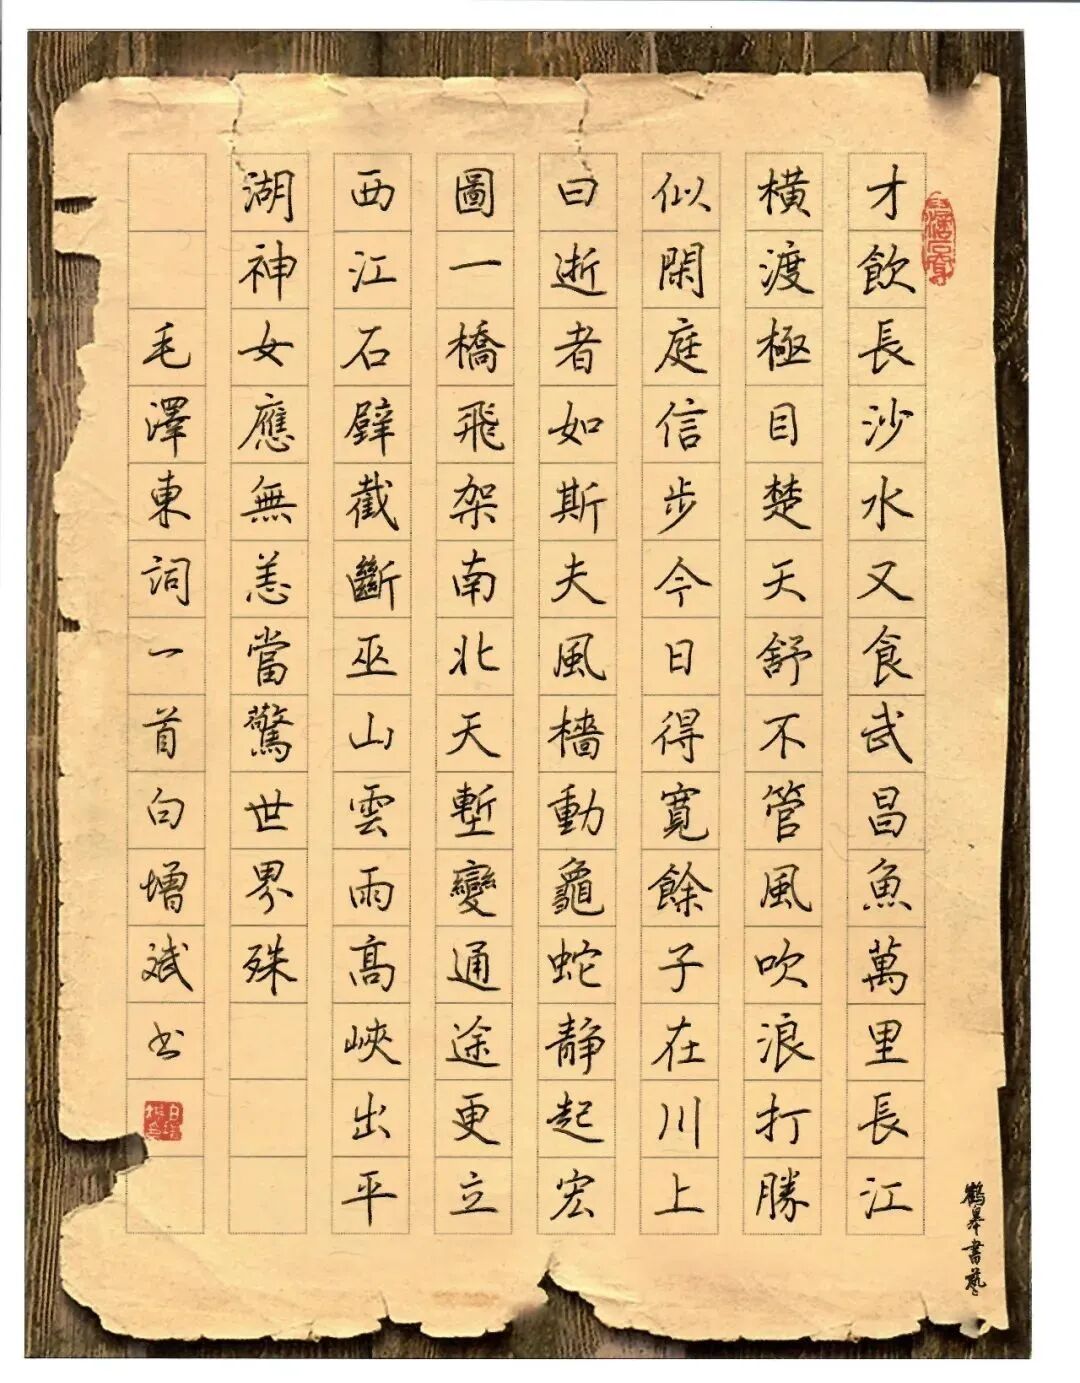 才飲長沙水又食武昌魚萬里長江
橫渡極目楚天舒不管風吹浪打勝
似閑庭信步今日得寬餘子在川上
曰逝者如斯夫風檣動龜蛇静起宏
圖一橋飛架南北天塹變通途更立
西江石壁截斷巫山雲雨高峽出平
湖神女應無恙當驚世界殊
毛澤東詞一首白增斌书
鶴皋書藝